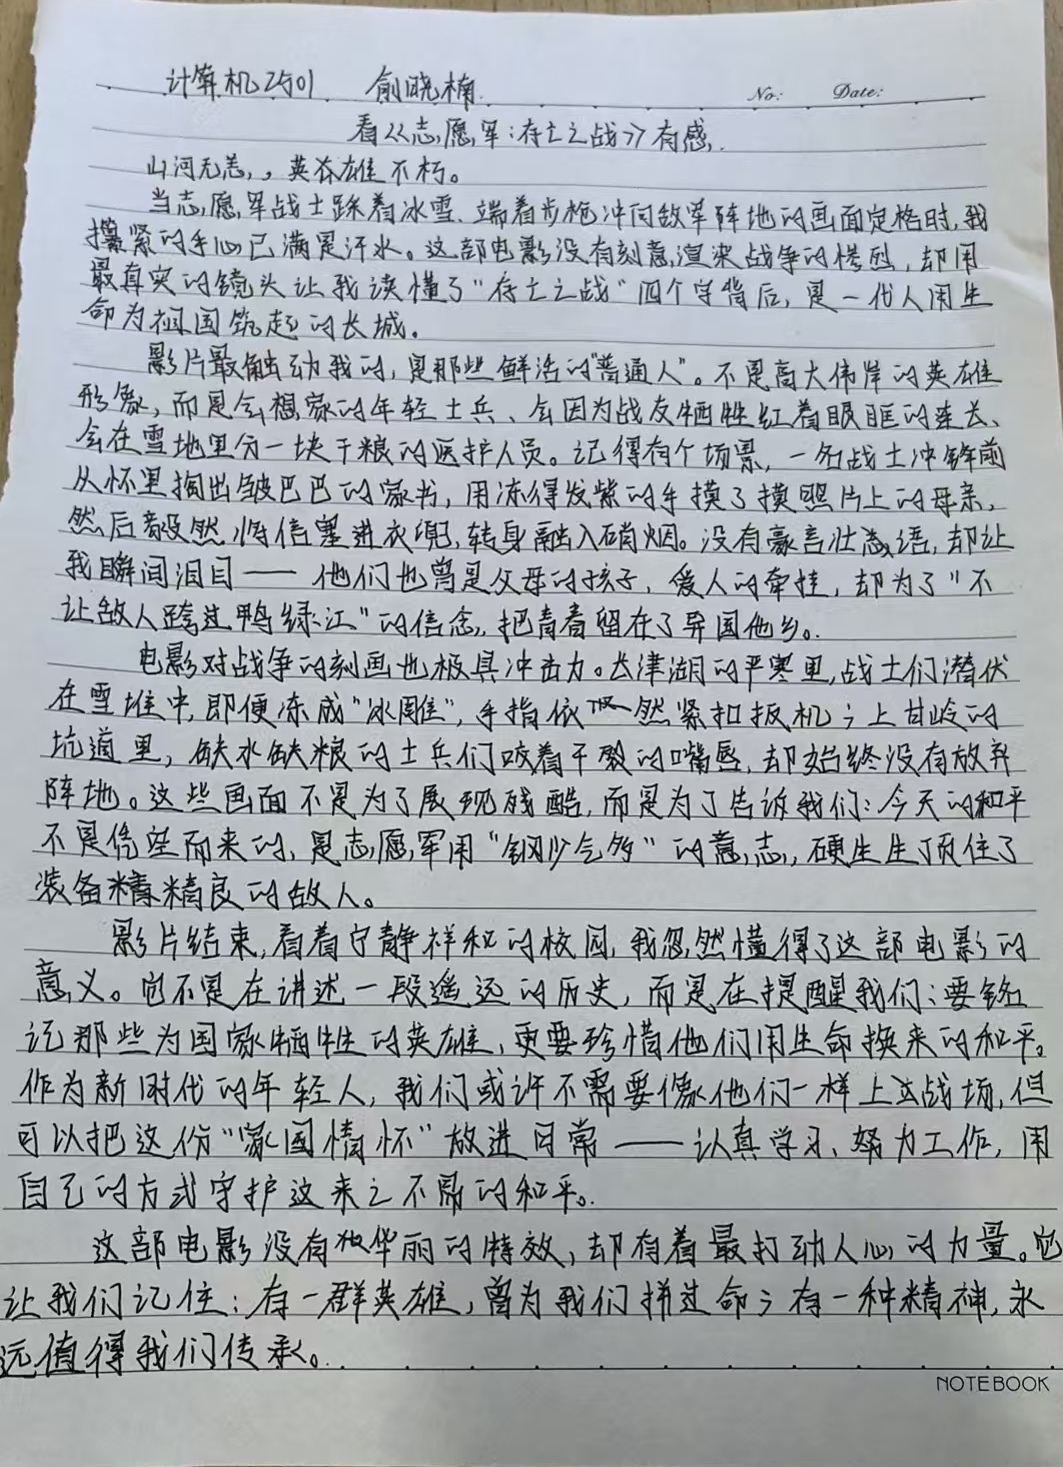 计算机2501 俞晓楠 No: Date:
看《志愿军:存亡之战》有感.
山河无恙,,英雄不朽。
当志愿军战士踩着冰雪、端着步枪冲向敌军阵地的画面定格时,我
攥紧的手心已满是汗水。这部电影没有刻意渲染战争的惨烈,却用
最真实的镜头让我读懂了"存亡之战"四个字背后,是一代人用生
命为祖国筑起的长城。
影片最触动我的,是那些鲜活的"普通人"。不是高大伟岸的英雄
形象,而是会想家的年轻士兵、会因为战友牺牲红着眼眶的连长、
会在雪地里分一块干粮的医护人员。记得有个场景,一名战士冲锋前
从怀里掏出皱巴巴的家书,用冻得发紫的手摸了摸照片上的母亲,
然后毅然将信塞进衣兜,转身融入硝烟。没有豪言壮语,却让
我瞬间泪目——他们也曾是父母的孩子,爱人的牵挂,却为了"不
让敌人跨过鸭绿江"的信念,把青春留在了异国他乡。
电影对战争的刻画也极具冲击力。长津湖的严寒里,战士们潜伏
在雪堆中,即便冻成"冰雕",手指依然紧扣扳机;上甘岭的
坑道里,缺水缺粮的士兵们咬着干裂的嘴唇,却始终没有放弃
阵地。这些画面不是为了展现残酷,而是为了告诉我们:今天的和平
不是凭空而来的,是志愿军用"钢少气多"的意志,硬生生顶住了
装备精精良的敌人。
影片结束,看着宁静祥和的校园,我忽然懂得了这部电影的
意义。它不是在讲述一段遥远的历史,而是在提醒我们:要铭
记那些为国家牺牲的英雄,更要珍惜他们用生命换来的和平。
作为新时代的年轻人,我们或许不需要像他们一样上战场,但
可以把这份"家国情怀"放进日常——认真学习、努力工作,用
自己的方式守护这来之不易的和平。
这部电影没有华丽的特效,却有着最打动人心的力量。它
让我们记住:有一群英雄,曾为我们拼过命;有一种精神,永
远值得我们传承。
NOTEBOOK